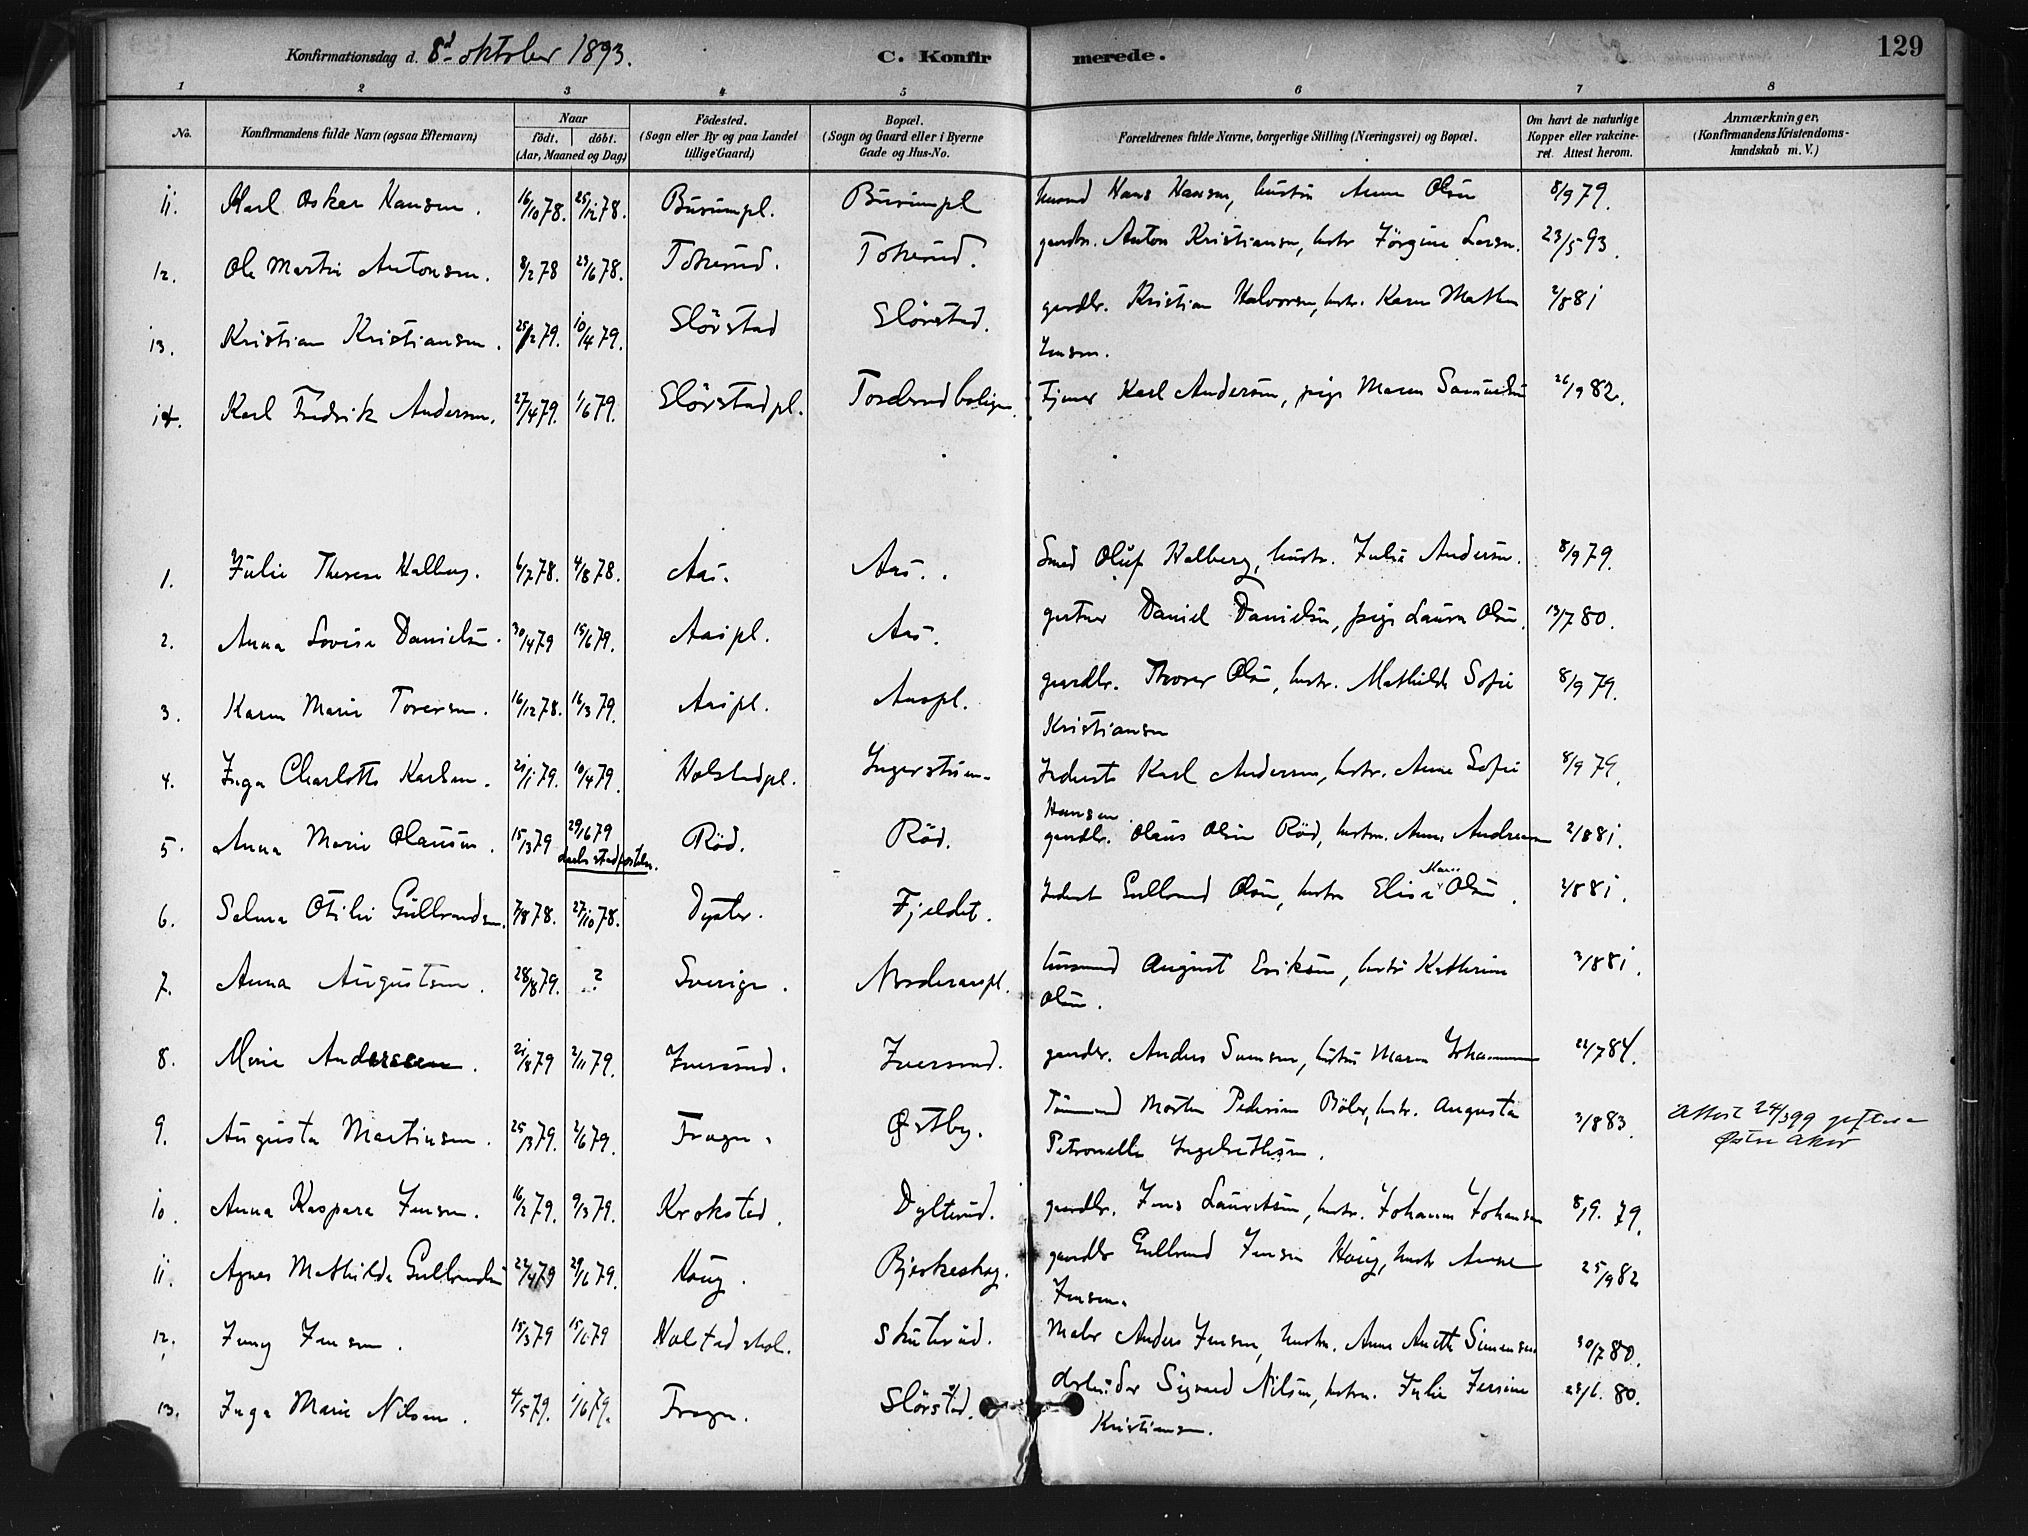 Konfirmationsdag d. 8d oktober 1893. C. Konfirmerede. 129
1 2 3 4 5 6 7 8
No. Konfirmandens fulde Navn (ogsaa Efternavn) Naar født. døbt. (Aar, Maaned og Dag) Fødested. (Sogn eller By og paa Landet tillige Gaard) Bopæl. (Sogn og Gaard eller i Byerne Gade og Hus-No. Forældrenes fulde Navne, borgerlige Stilling (Næringsvei) og Bopæl. Om havt de naturlige Kopper eller vakcineret. Attest herom. Anmærkninger, (Konfirmandens Kristendomskundskab m. V.)
11. Karl Oskar Hansen. 16/10 78. 25/12 78. Burumpl. Burumpl husmd Hans Hansen, hustru Anne Olsen 8/9 79.
12. Ole Martin Antonsen. 8/2 78 23/6 78. Tokerud. Tokerud. gardbr. Anton Kristiansen, hustr Jörgine Larsn. 23/5 93.
13. Kristian Kristiansen. 25/2 79. 10/4 79. Slörstad Slörstad. gardbr. Kristian Halvorsen, hustr. Karen Mathea 2/8 81
Jensen.
14. Karl Fredrik Andersen. 27/4 79. 1/6 79. Slörstadpl. Tjener Karl Andersen, pige Maren Samuelsen 26/9 82.
1. Julie Therese Halberg. 6/7 78. 4/8 78. Aas. Aas. Smed Oluf Halberg, hustr. Julie Andersen. 8/9 79.
2. Anna Lovise Danielsen. 30/4 79 15/6 79. Aaspl. Aas. gartner Daniel Danielsen, pige Laura Olsen. 13/7 80.
3. Karen Marie Toversen. 16/12 78. 16/3 79. Aaspl. Aaspl. gardbr. Thover Olsen, hustr. Mathilde Sofie 8/9 79.
Kristiansen
4. Inga Charlotte Karlsen. 21/1 79. 10/4 79. Holstadpl. Ingerstrum Inderst Karl Andersen, hustr. Anne Sofie 8/9 79.
Hansen
5. Anna Marie Olausen. 15/3 79 29/6 79 Röd. Röd. gardbr. Olaus Olsen Röd, hustru. Anne Andresen 2/8 81.
6. Selma Otilie Gulbrandsen. 7/8 78. 27/10 78. Dyster. Fjeldet. Inderst Gulbrand Olsen, hustru Elise Marie Olsen. 2/8 81.
7. Anna Augustsen. 28/8 79. ? Sverige. Norderaaspl. husmand August Eriksen, hustru Kathrine 3/8 81.
Olsen.
8. Marie Anderssen. 21/8 79 2/11 79. Iversrud. Iversrud. gardbr. Anders Svensen, hustru Maren Johannesen 22/7 84.
9. Augusta Martinsen. 25/3 79. 2/6 79. Frogn. Østby. Tömmerm Morten Pedersen Böler, hustr. Augusta 3/8 83. Attest 24/3 99 giftes i
Petronelle Ingebrethsen. Østre Aker
10. Anna Kaspara Jensen. 16/2 79. 9/3 79. Krokstad. Dylterud. gardbr. Jens Lauritsen, hustr. Johanne Johansen 8/9. 79.
11. Agnes Mathilde Gulbrandsen 22/4 79 29/6 79. Houg. Bjerkeskog. gardbr Gulbrand Jensen Houg, hustr Anne 25/9 82
Jensen.
12. Jenny Jensen. 15/3 79 15/6 79 Holstad skol. Skuterud. Maler Anders Jensen, hustru. Anne Anette Simensen 30/7 80.
13. Inga Marie Nilsen. 4/5 79. 1/6 79. Frogn. Slörstad. Arbeider Sigvard Nilsen, hustru. Julie Jensine 28/6. 80.
Kristiansen.